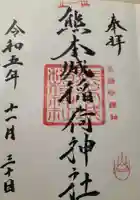 奉拝
熊本城稲荷神社
令和五年
十一月
三十日